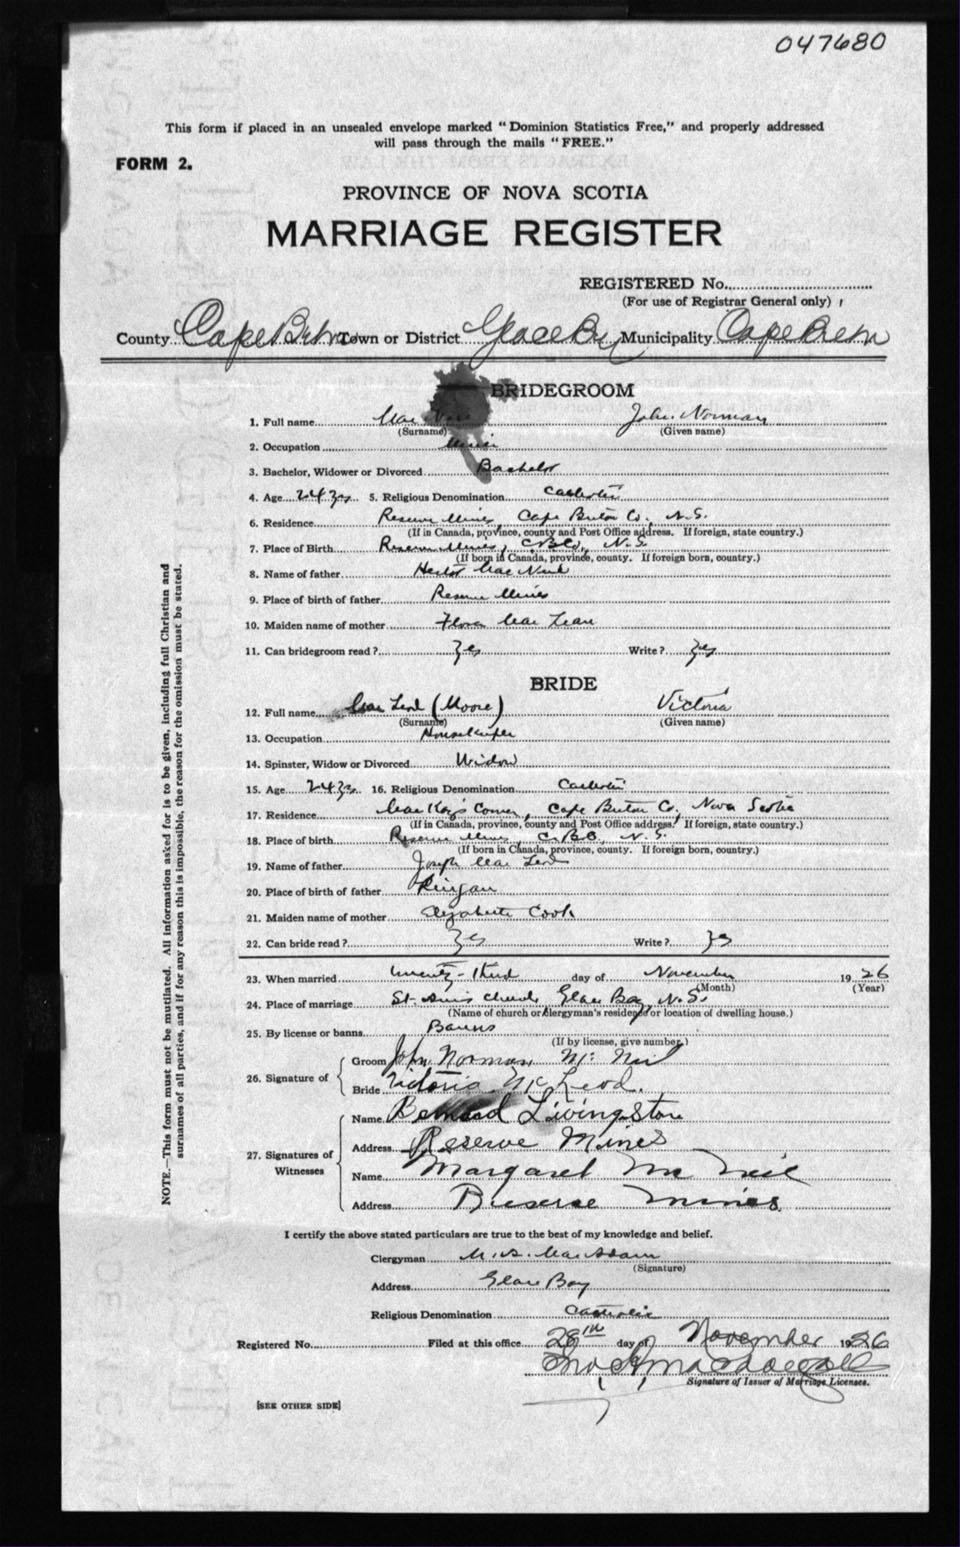 047680
This form if placed in an unsealed envelope marked "Dominion Statistics Free," and properly addressed
will pass through the mails "FREE."
FORM 2.
PROVINCE OF NOVA SCOTIA
MARRIAGE REGISTER
REGISTERED No.
(For use of Registrar General only)
County Cape Breton Town or District Glace Bay Municipality Cape Breton
BRIDEGROOM
1. Full name Mac John Norman
(Surname) (Given name)
2. Occupation Miner
3. Bachelor, Widower or Divorced Bachelor
4. Age 24 yrs 5. Religious Denomination Catholic
6. Residence Reserve Mines, Cape Breton Co., N.S.
(If in Canada, province, county and Post Office address. If foreign, state country.)
7. Place of Birth Reserve Mines, C.B.Co., N.S.
(If born in Canada, province, county. If foreign born, country.)
8. Name of father Hector MacNeil
9. Place of birth of father Reserve Mines
10. Maiden name of mother Flora MacLean
11. Can bridegroom read? Yes Write? Yes
BRIDE
12. Full name MacLeod (Moore) Victoria
(Surname) (Given name)
13. Occupation Housekeeper
14. Spinster, Widow or Divorced Widow
15. Age 24 yrs 16. Religious Denomination Catholic
17. Residence MacKay's Corner, Cape Breton Co., Nova Scotia
(If in Canada, province, county and Post Office address. If foreign, state country.)
18. Place of birth Reserve Mines, C.B.Co., N.S.
(If born in Canada, province, county. If foreign born, country.)
19. Name of father Joseph MacLeod
20. Place of birth of father
21. Maiden name of mother Elizabeth Cook
22. Can bride read? Yes Write? Yes
23. When married Twenty-third day of November 1926
(Month) (Year)
24. Place of marriage St. Ann's Church, Glace Bay, N.S.
(Name of church or clergyman's residence or location of dwelling house.)
25. By license or banns Banns
(If by license, give number.)
26. Signature of
Groom John Norman McNeil
Bride Victoria McLeod.
27. Signatures of Witnesses
Name Bernard Livingstone
Address Reserve Mines
Name Margaret McNeil
Address Reserve Mines
I certify the above stated particulars are true to the best of my knowledge and belief.
Clergyman M. A. MacAdam
(Signature)
Address Glace Bay
Religious Denomination Catholic
Registered No. Filed at this office 28th day of November 1926
MacDougall
Signature of Issuer of Marriage Licenses.
[SEE OTHER SIDE]
NOTE.—This form must not be mutilated. All information asked for is to be given, including full Christian and
surnames of all parties, and if for any reason this is impossible, the reason for the omission must be stated.